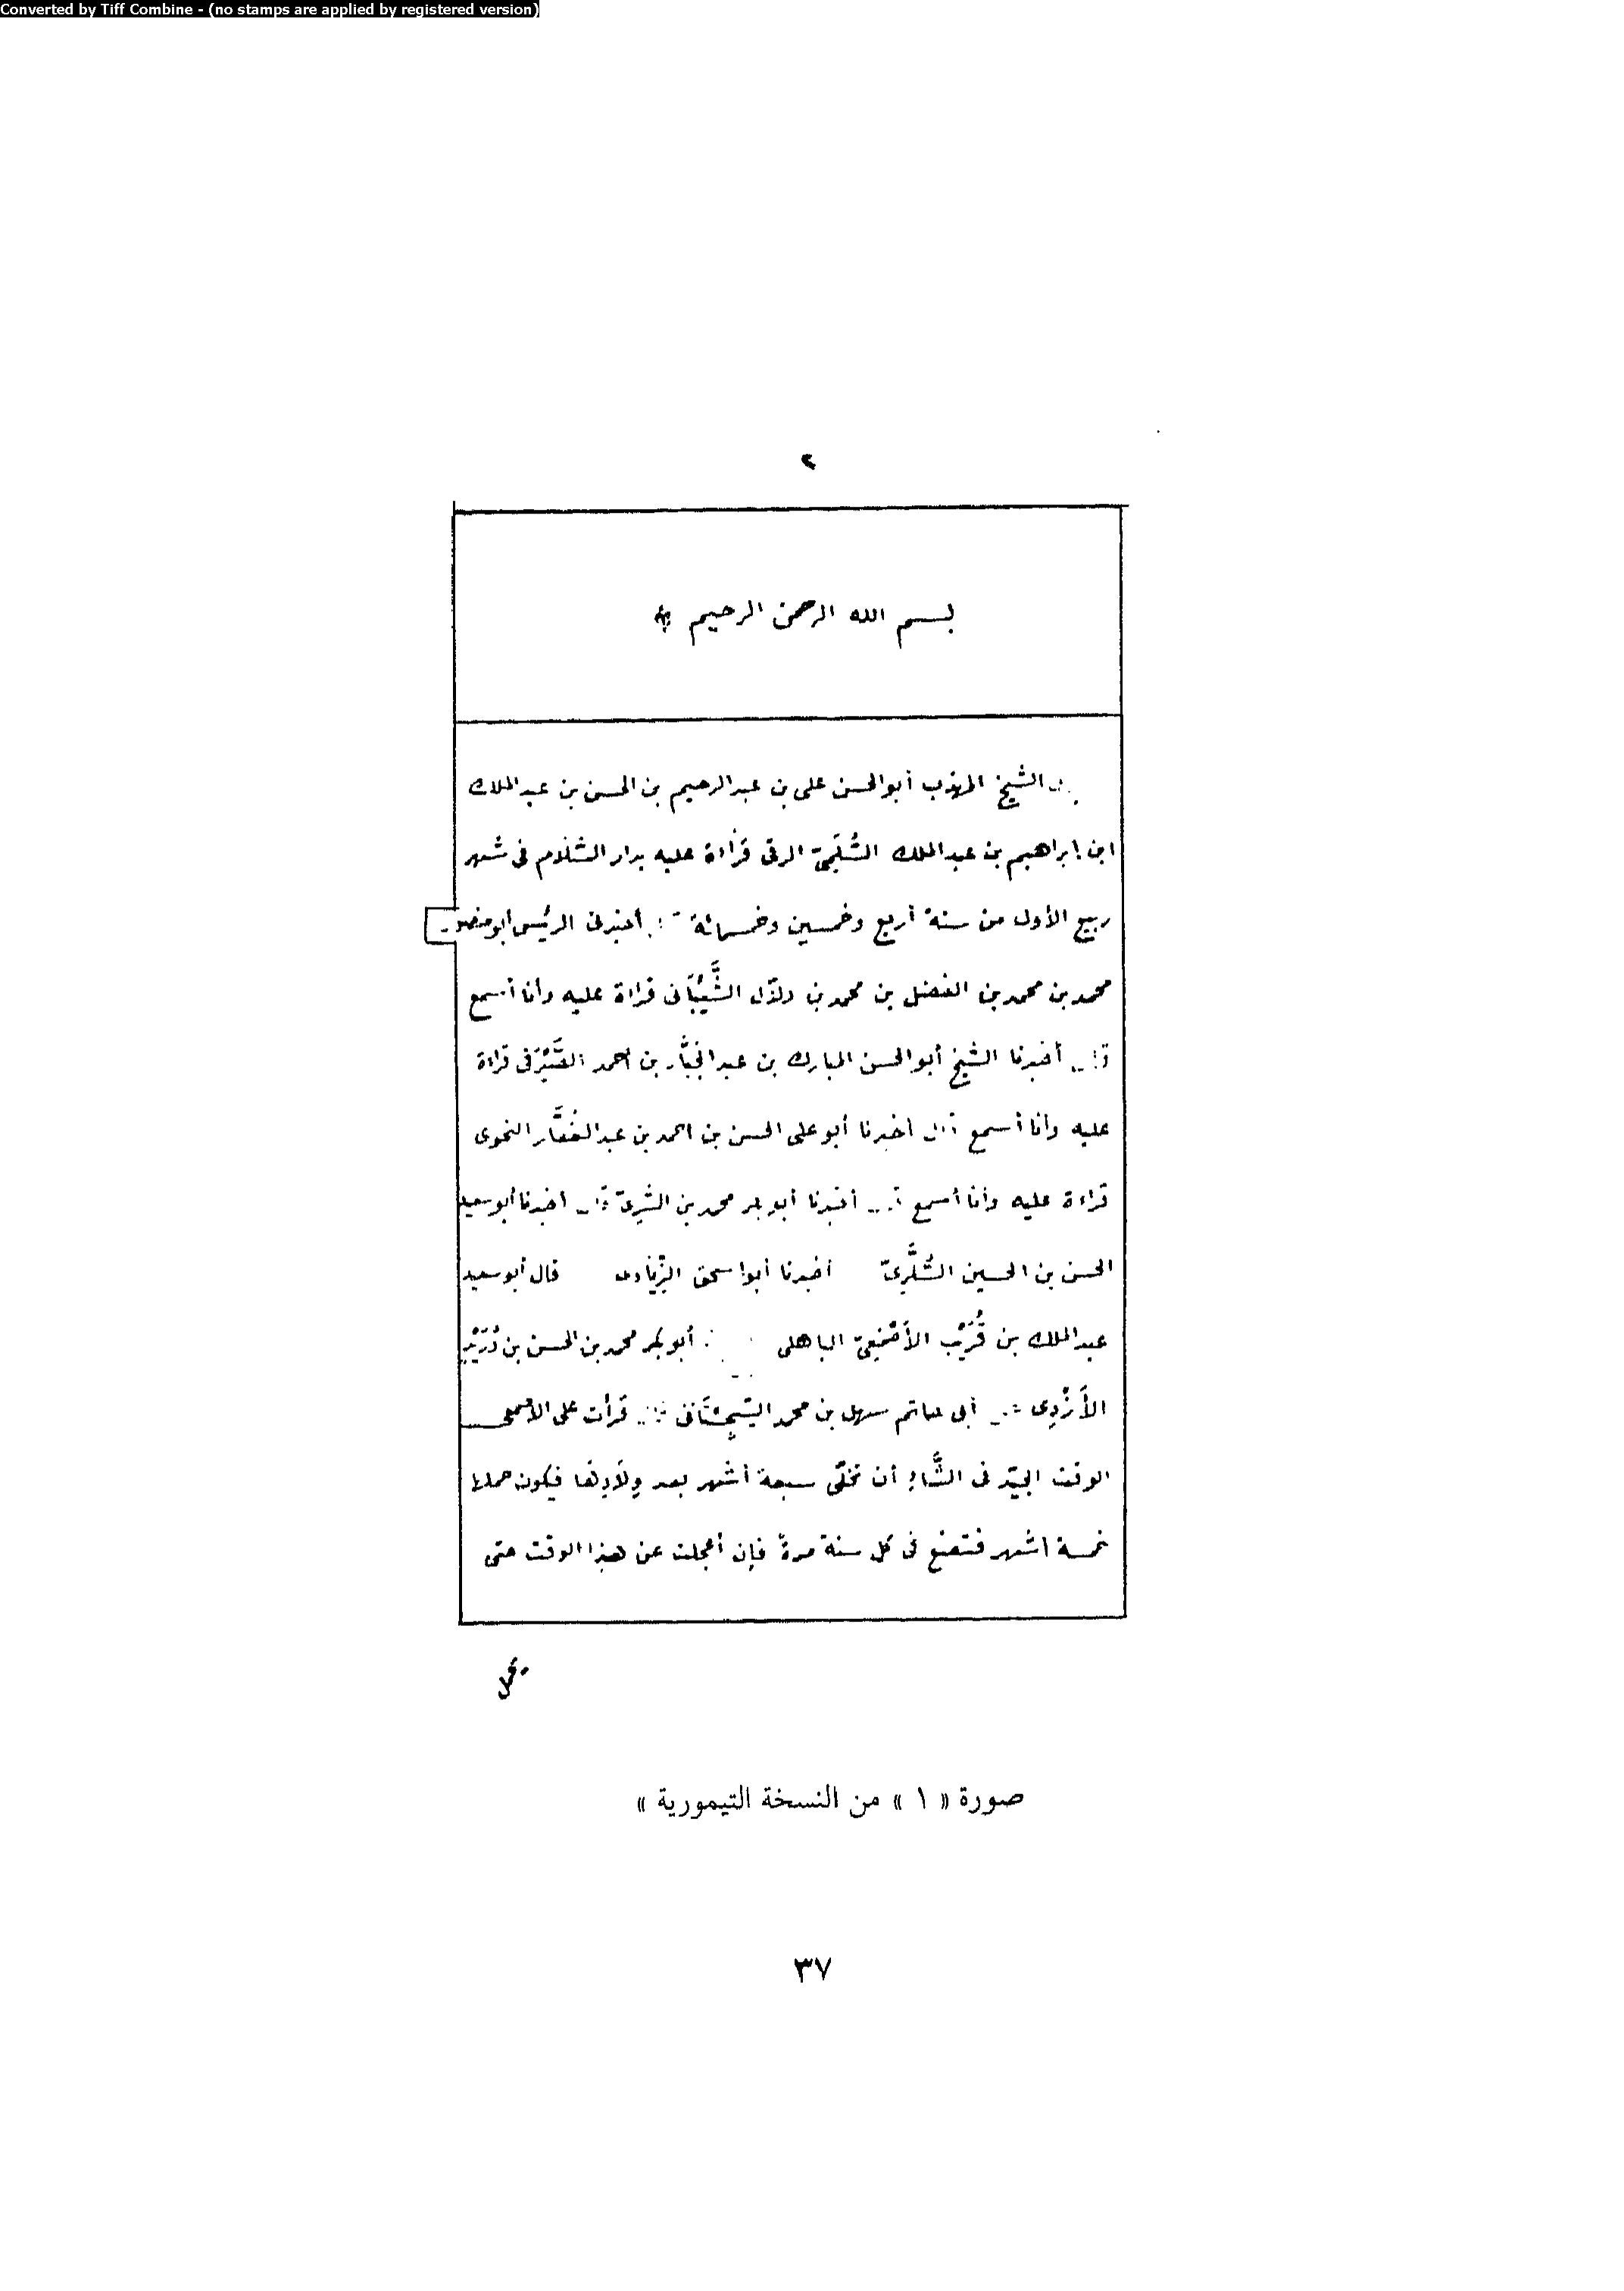 Converted by Tiff Combine - (no stamps are applied by registered version)
٢
بسم الله الرحمن الرحيم
الشيخ المهذب أبو الحسن على بن عبد الرحيم بن الحسن بن عبد الملك
ابن ابراهيم بن عبد الملك السُّلَمِىّ الرقى قراءة عليه بدار السَّلام فى شهر
ربيع الأول من سنة أربع وخمسين وخمسمائة أخبرنى الرئيس أبو منصور
محمد بن محمد بن الفضل بن محمد بن دلّال الشَّيْبَانى قراءة عليه وأنا أسمع
أخبرنا الشيخ أبو الحسن المبارك بن عبد الجَبَّار بن أحمد الصَّيْرَفى قراءة
عليه وأنا أسمع أخبرنا أبو على الحسن بن احمد بن عبد الغَفَّار النحوى
قراءة عليه وأنا أسمع أخبرنا أبو بكر محمد بن السَّرِىّ اخبرنا أبو سعيد
الحسن بن الحسين السُّكَّرِىّ أخبرنا أبو اسحق الزِّيَادى قال أبو سعيد
عبد الملك بن قُرَيْب الأَصْمَعِىّ الباهلى أبو بكر محمد بن الحسن بن دُرَيْدٍ
الأَزْدِى أبى حاتم سهل بن محمد السِّجِسْتَانى قرأت على الأصمعى
الوقت الجيّد فى الشَّاءِ أن تخلّى سبعة أشهر بعد وِلَادِهَا فيكون حملها
خمسة اشهر فتضع فى كل سنة مرة فإن أعجلت عن هذا الوقت حتى
صورة « ١ » من النسخة التيمورية »
٣٧